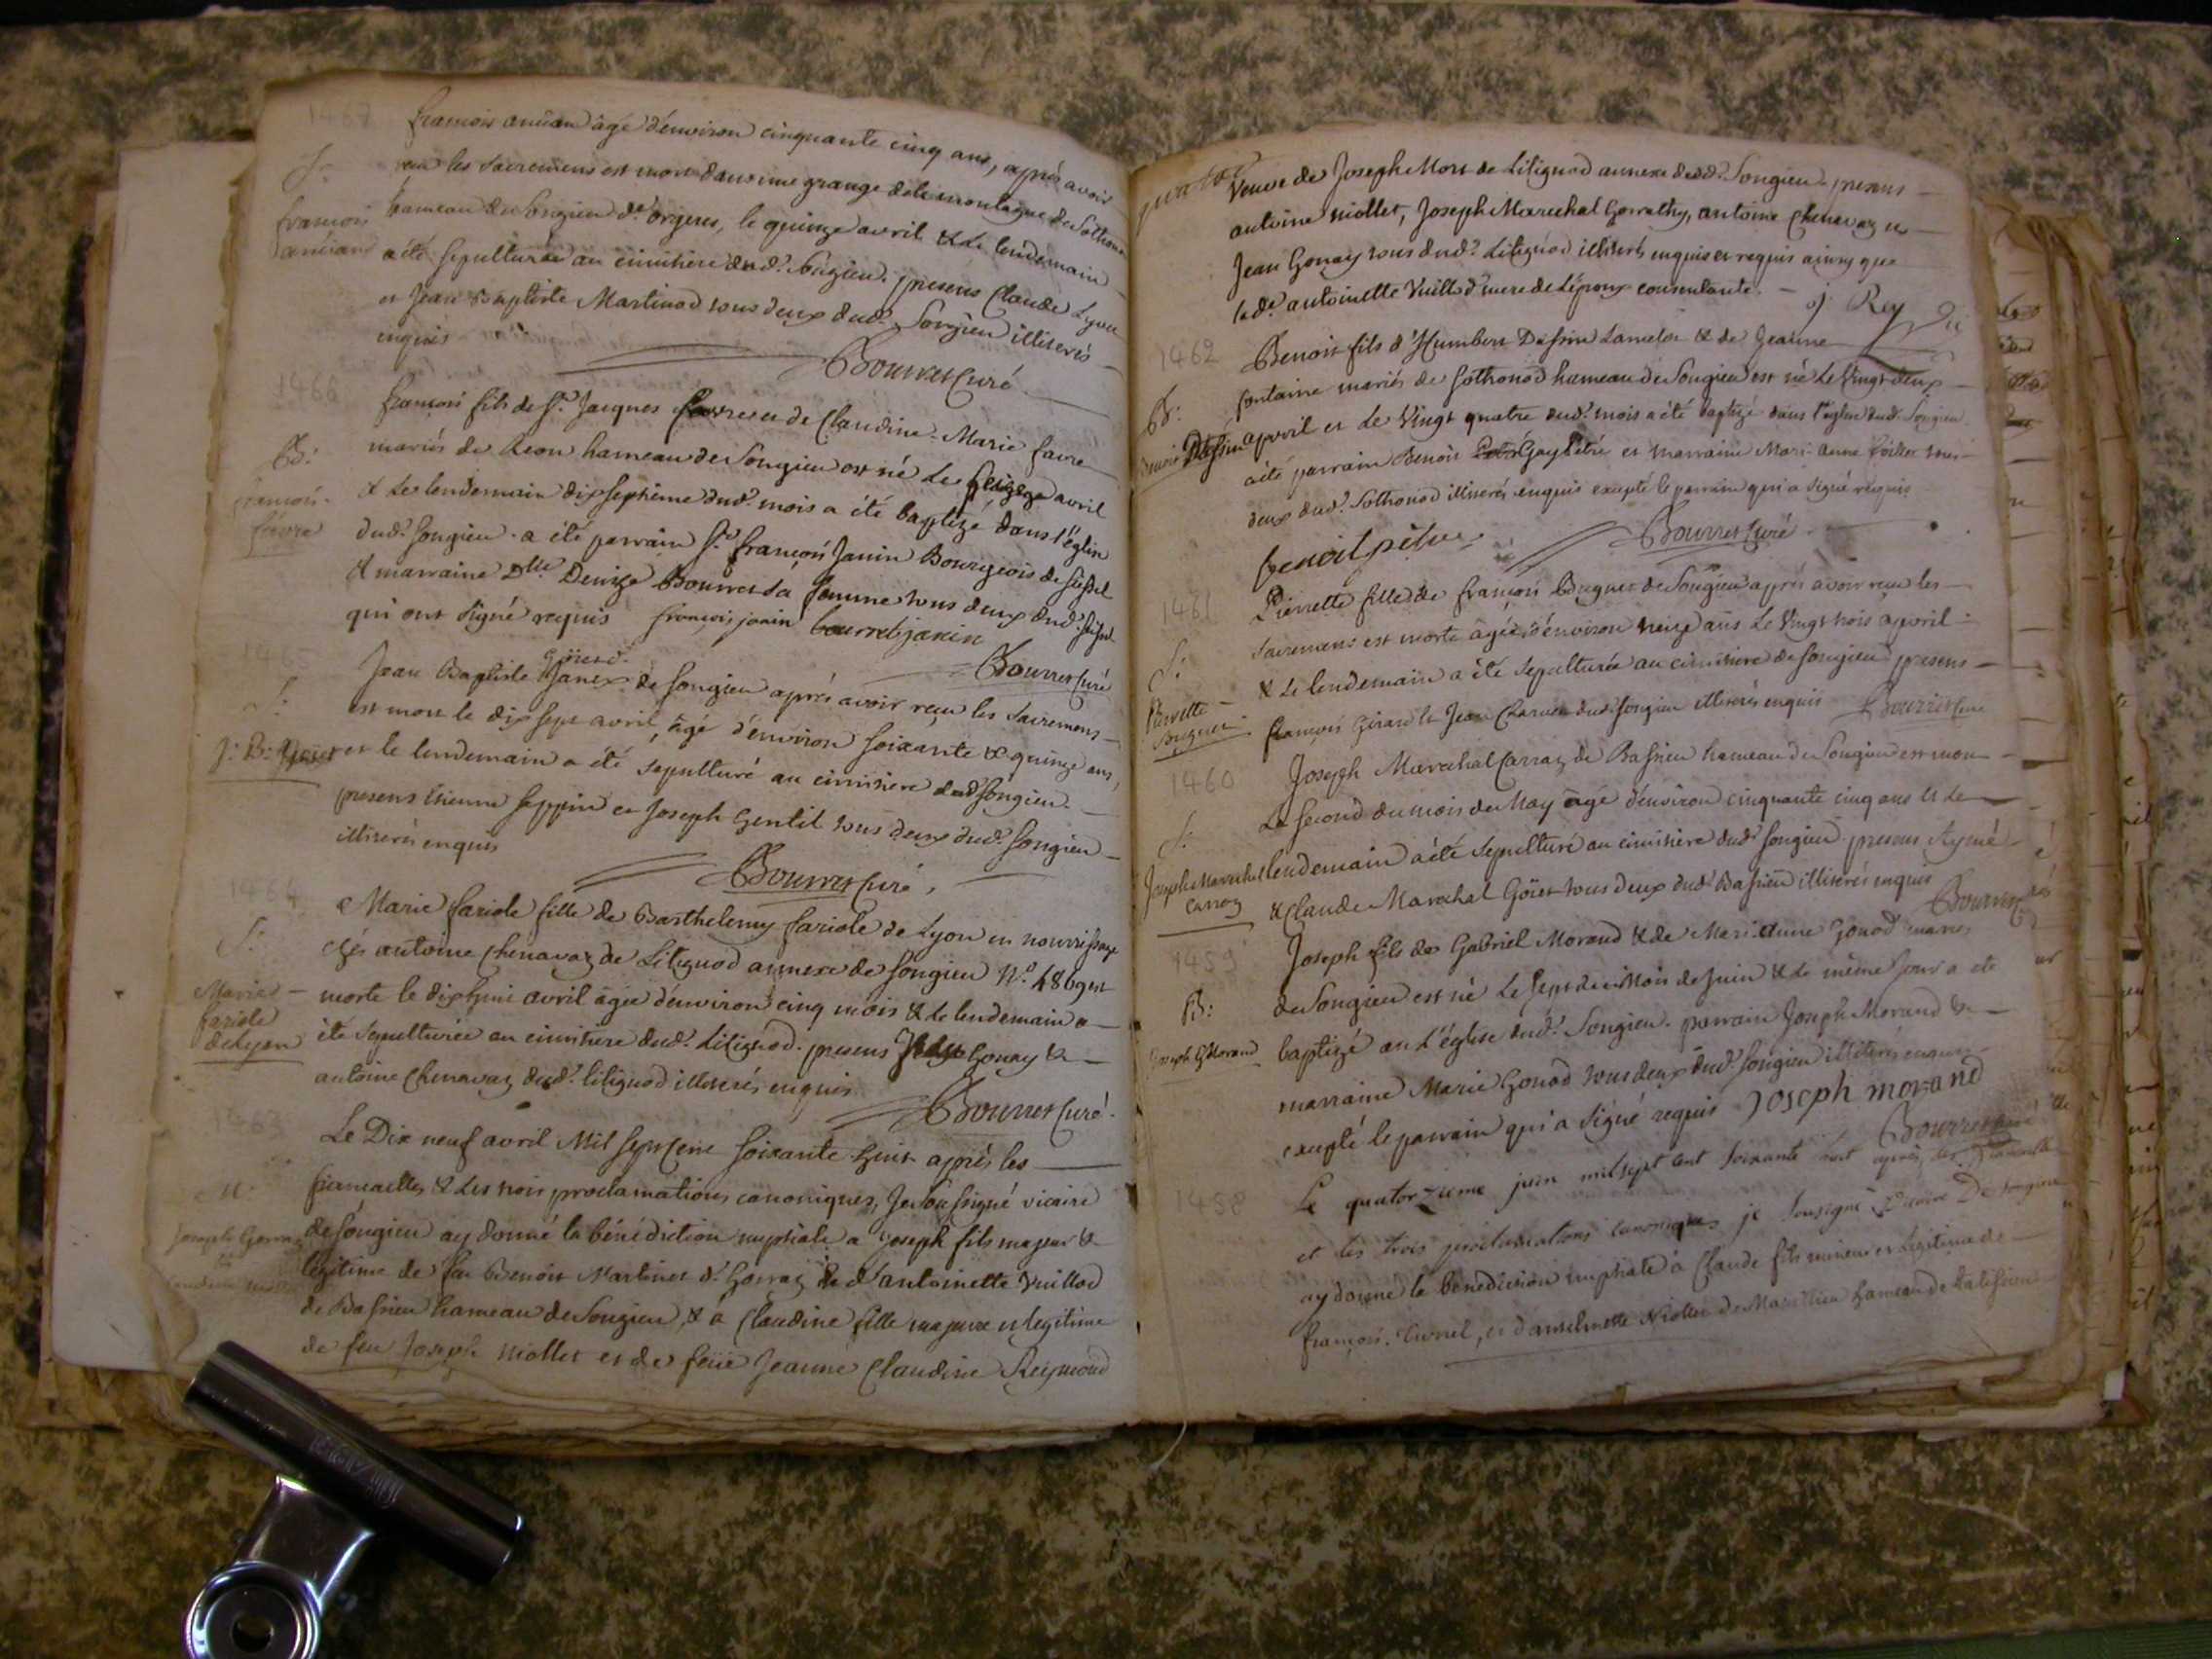 1467
françois ancian âgé d'environ cinquante cinq ans, après avoir
S:
reçu les sacremens est mort dans une grange de la montagne de Sothonod
françois
ancian
hameau de Songieu d. orgeres, le quinze avril & le lendemain
a été sepulturé au cimitiere dud. Songieu. presens Claude Lyon
et Jean Baptiste Martinod tous deux dud. Songieu illiterés
enquis
Bourret Curé
1466
françois fils de Sr. Jacques favre et de Claudine-Marie favre
B:
françois
favre
mariés de hameau de Songieu est né le seizieme avril
& le lendemain dixseptième dud. mois a été baptizé dans l'église
dud. Songieu. a été parrain Sr. françois Janin Bourgeois de Seissel
& marraine Dlle Denize Bourret sa femme tous deux dud. Seissel
qui ont signé requis françois janin bourret janin
Bourret Curé
S:
J: B:
Jean Baptiste de Songieu après avoir reçu les sacremens
est mort le dix sept avril, âgé d'environ soixante & quinze ans,
et le lendemain a été sepulturé au cimitiere dud. Songieu.
presens Etienne Seppin et Joseph Gentil tous deux dud. Songieu
illiterés enquis
Bourret Curé.
1464
S:
Marie
fariole
de Lyon
Marie fariole fille de Barthelemy fariole de Lyon en nourrissage
chés antoine Chenavaz de Litignod annexe de Songieu N.o 4869 est
morte le dixhuit avril âgée d'environ cinq mois & le lendemain a
été sepulturée au cimitiere dud. Litignod. presens Gonay &
antoine Chenavaz dud. Litignod illiterés enquis
Bourret Curé.
1463
M:
Joseph Gorraz
&
Claudine niollet
Le Dix neuf avril Mil Sept Cent Soixante huit après les
fiancailles & les trois proclamations canoniques, Je soussigné vicaire
de Songieu ay donné la bénédiction nuptiale a Joseph fils majeur &
légitime de feu Benoit Martinet d. Gorraz & d'antoinette Vuillod
de Bassieu hameau de Songieu, & a Claudine fille majeure et legitime
de feu Joseph niollet et de feüe Jeanne Claudine Reymond
Veuve de Joseph Mort de Litignod annexe dud. Songieu. presens
antoine niollet, Joseph Marechal Gorrathy, antoine Chenavaz et
Jean Gonay tous dud. Litignod illiterés enquis et requis ainsy que
lad. antoinette Vuillod mere de l'époux consentante. J. Rey
1462
B:
Benoit Dessin
Benoit fils d'Humbert Dessin Lancelot & de Jeanne
fontaine mariés de Sothonod hameau de Songieu est né le Vingt deux
avril et le Vingt quatre dud. mois a été baptizé dans l'église dud. Songieu
a été parrain Benoit Gay Pitre et marraine Marie anne tous
deux dud. Sothonod illiterés enquis excepté le parrain qui a signé requis
benoit pitre
Bourret Curé
1461
S:
Pierrette
Buguet
Pierrette fille de françois Buguet de Songieu après avoir reçu les
sacremens est morte âgée d'environ ans le Vingt trois avril
& le lendemain a été sepulturée au cimitiere de Songieu presens
françois Girard & Jean Charvet dud. Songieu illiterés enquis Bourret Curé
1460
S:
Joseph Marechal
Carraz
Joseph Marechal Carraz de Bassieu hameau de Songieu est mort
Le second du mois de May âgé d'environ cinquante cinq ans & le
lendemain a été sepulturé au cimitiere dud. Songieu. presens Aymé
& Claude Marechal Goüet tous deux dud. Bassieu illiterés enquis
Bourret Curé
1459
B:
Joseph Morand
Joseph fils de Gabriel Morand & de Marie anne Gonod mariés
de Songieu est né Le sept du mois de Juin & le même jour a été
baptizé en l'église dud. Songieu. parrain Joseph Morand &
marraine Marie Gonod tous deux dud. Songieu illiterés enquis
excepté le parrain qui a signé requis Joseph morand
Bourret Curé
1458
Le quatorzieme juin mil sept cent soixante huit après les fiancailles
et les trois proclamations canoniques je soussigné Vicaire De Songieu
ay donné la benediction nuptiale à Claude fils mineur et legitime de
françois et d'anselmette Niollet de hameau de